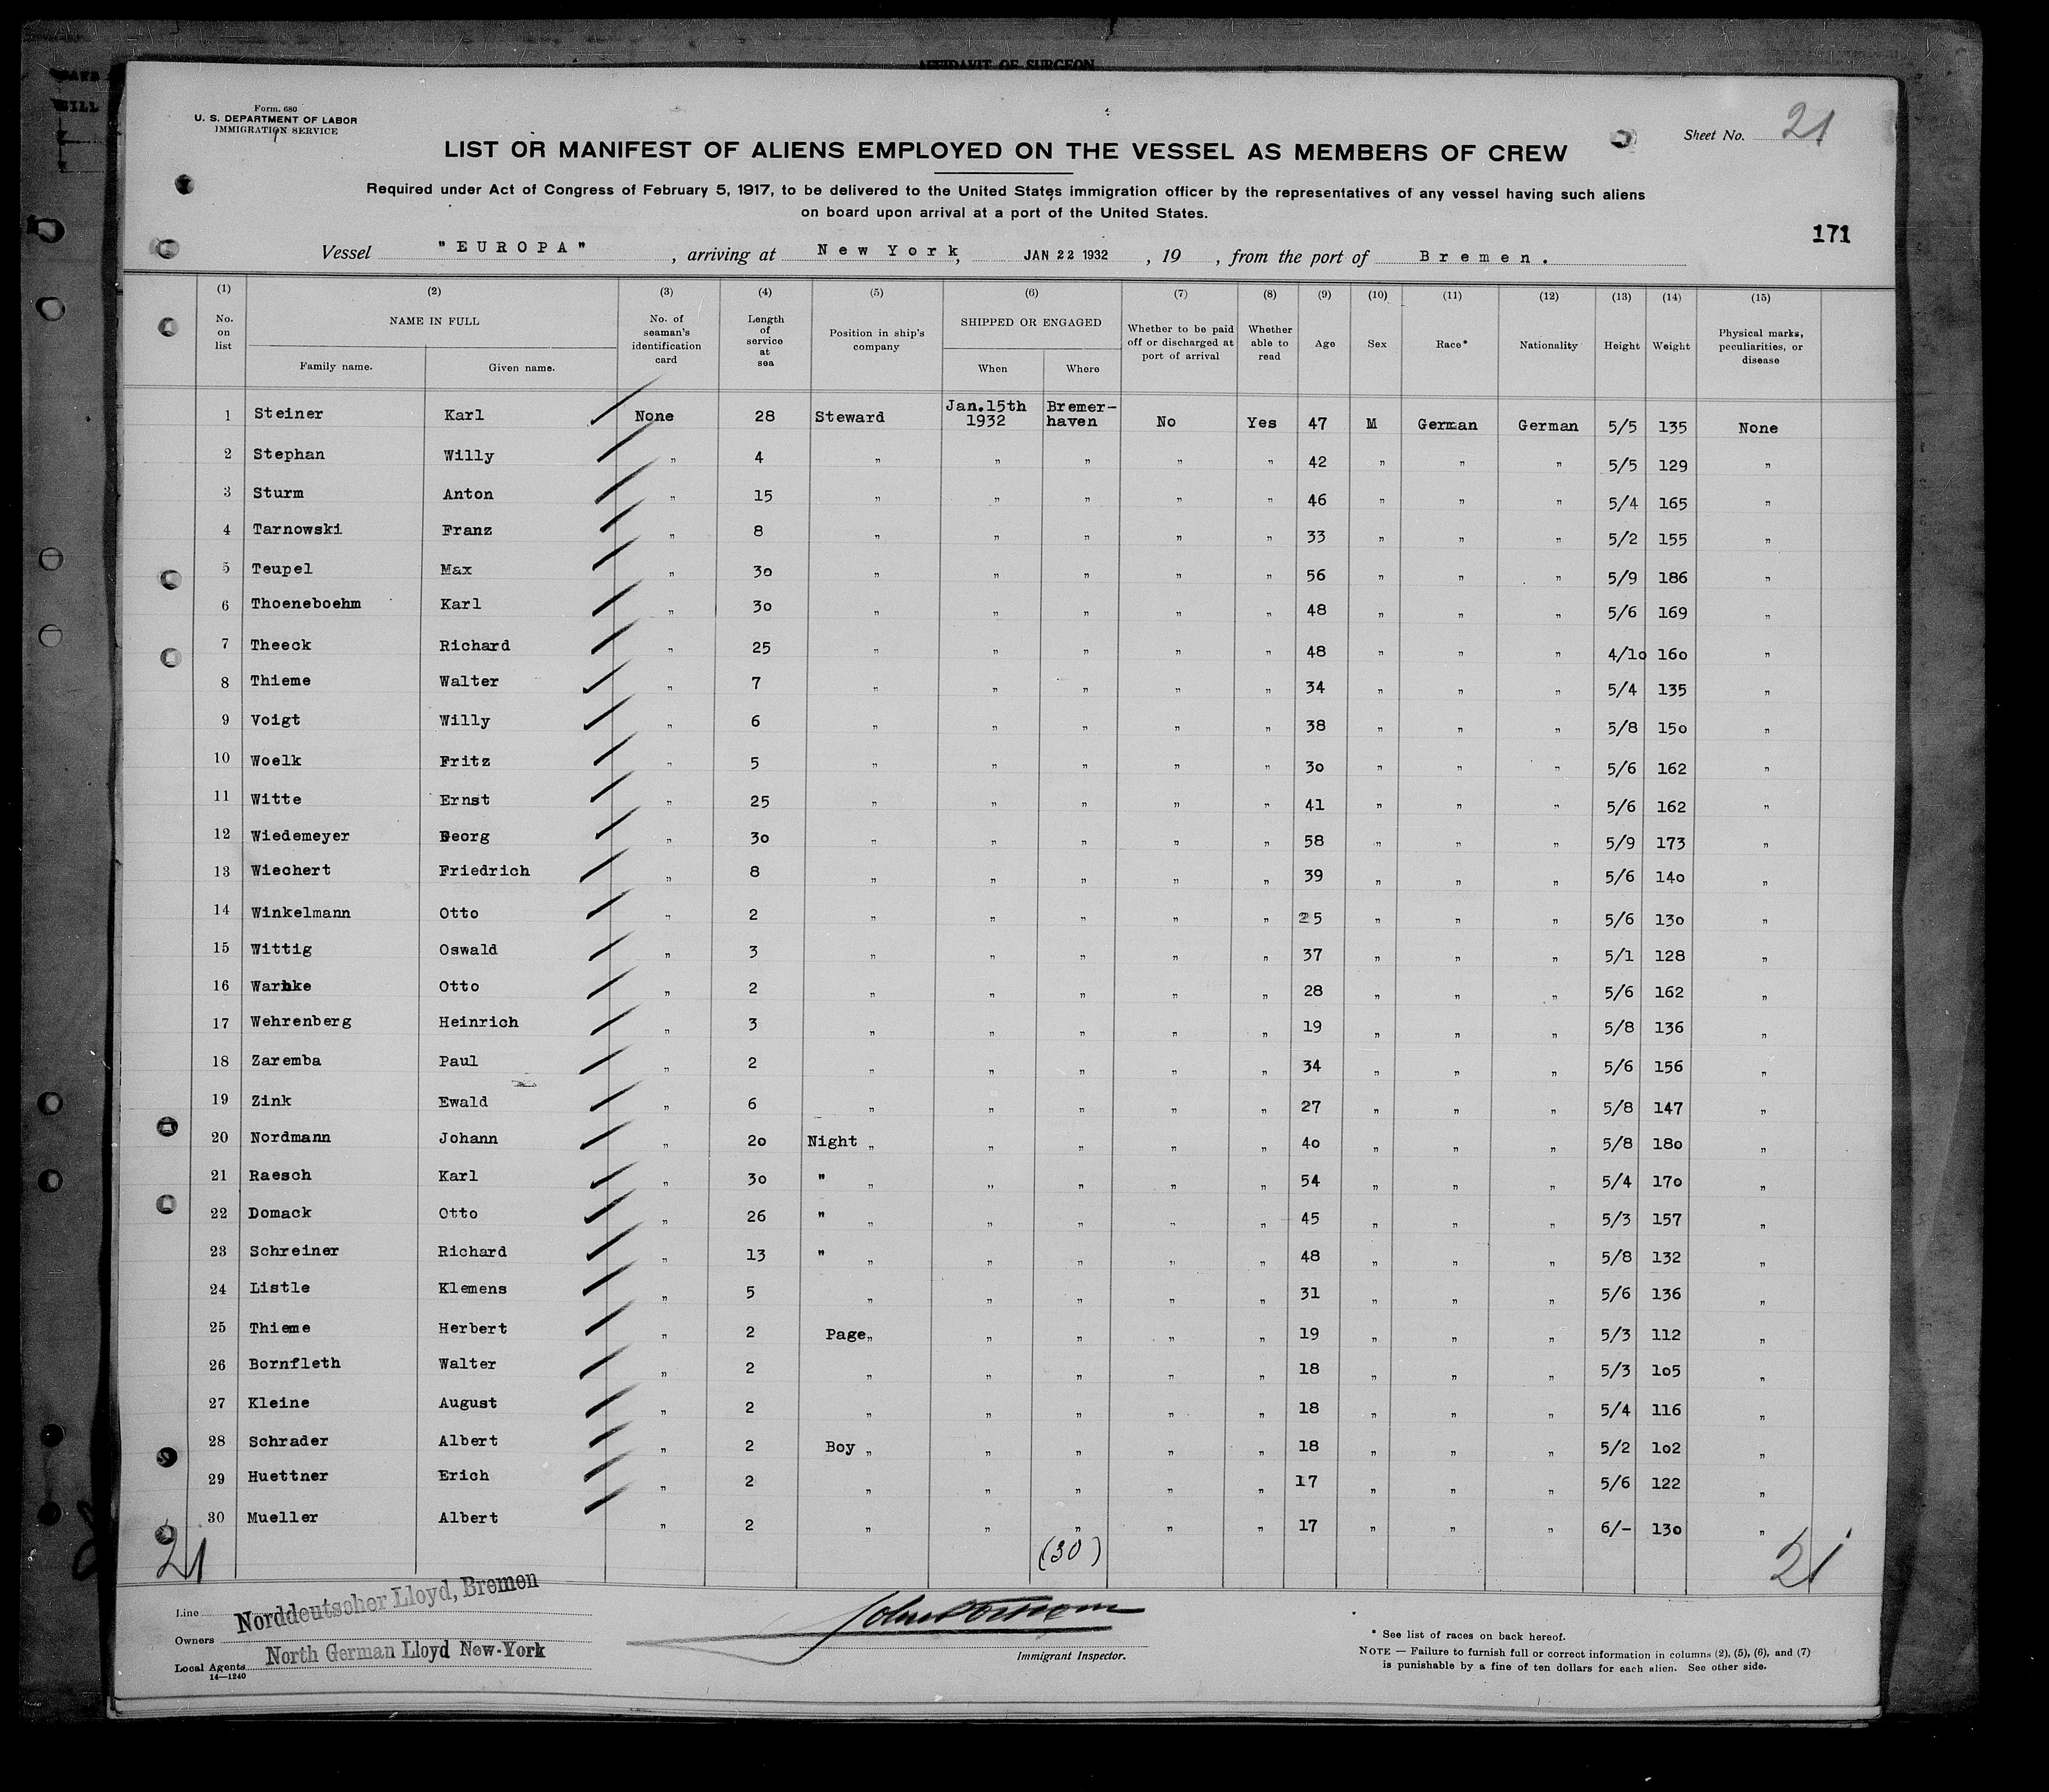 AFFIDAVIT OF SURGEON
Form. 680
U. S. DEPARTMENT OF LABOR
IMMIGRATION SERVICE
Sheet No. 21
LIST OR MANIFEST OF ALIENS EMPLOYED ON THE VESSEL AS MEMBERS OF CREW
Required under Act of Congress of February 5, 1917, to be delivered to the United States immigration officer by the representatives of any vessel having such aliens
on board upon arrival at a port of the United States.
171
Vessel "EUROPA", arriving at New York, JAN 22 1932, 19 , from the port of Bremen.
(1) (2) (3) (4) (5) (6) (7) (8) (9) (10) (11) (12) (13) (14) (15)
No. on list NAME IN FULL Family name. Given name. No. of seaman's identification card Length of service at sea Position in ship's company SHIPPED OR ENGAGED When Where Whether to be paid off or discharged at port of arrival Whether able to read Age Sex Race* Nationality Height Weight Physical marks, peculiarities, or disease
1 Steiner Karl None 28 Steward Jan.15th 1932 Bremer-haven No Yes 47 M German German 5/5 135 None
2 Stephan Willy " 4 " " " " " 42 " " " 5/5 129 "
3 Sturm Anton " 15 " " " " " 46 " " " 5/4 165 "
4 Tarnowski Franz " 8 " " " " " 33 " " " 5/2 155 "
5 Teupel Max " 30 " " " " " 56 " " " 5/9 186 "
6 Thoeneboehm Karl " 30 " " " " " 48 " " " 5/6 169 "
7 Theeck Richard " 25 " " " " " 48 " " " 4/10 160 "
8 Thieme Walter " 7 " " " " " 34 " " " 5/4 135 "
9 Voigt Willy " 6 " " " " " 38 " " " 5/8 150 "
10 Woelk Fritz " 5 " " " " " 30 " " " 5/6 162 "
11 Witte Ernst " 25 " " " " " 41 " " " 5/6 162 "
12 Wiedemeyer Georg " 30 " " " " " 58 " " " 5/9 173 "
13 Wiechert Friedrich " 8 " " " " " 39 " " " 5/6 140 "
14 Winkelmann Otto " 2 " " " " " 25 " " " 5/6 130 "
15 Wittig Oswald " 3 " " " " " 37 " " " 5/1 128 "
16 Warnke Otto " 2 " " " " " 28 " " " 5/6 162 "
17 Wehrenberg Heinrich " 3 " " " " " 19 " " " 5/8 136 "
18 Zaremba Paul " 2 " " " " " 34 " " " 5/6 156 "
19 Zink Ewald " 6 " " " " " 27 " " " 5/8 147 "
20 Nordmann Johann " 20 Night " " " " " 40 " " " 5/8 180 "
21 Raesch Karl " 30 " " " " " " 54 " " " 5/4 170 "
22 Domack Otto " 26 " " " " " " 45 " " " 5/3 157 "
23 Schreiner Richard " 13 " " " " " " 48 " " " 5/8 132 "
24 Listle Klemens " 5 " " " " " 31 " " " 5/6 136 "
25 Thieme Herbert " 2 Page " " " " " 19 " " " 5/3 112 "
26 Bornfleth Walter " 2 " " " " " 18 " " " 5/3 105 "
27 Kleine August " 2 " " " " " 18 " " " 5/4 116 "
28 Schrader Albert " 2 Boy " " " " " 18 " " " 5/2 102 "
29 Huettner Erich " 2 " " " " " 17 " " " 5/6 122 "
30 Mueller Albert " 2 " " " " " 17 " " " 6/- 130 "
21 (30) 21
Line Norddeutscher Lloyd, Bremen
Owners
Local Agents North German Lloyd New-York
14—1240
Immigrant Inspector.
* See list of races on back hereof.
NOTE — Failure to furnish full or correct information in columns (2), (5), (6), and (7)
is punishable by a fine of ten dollars for each alien. See other side.